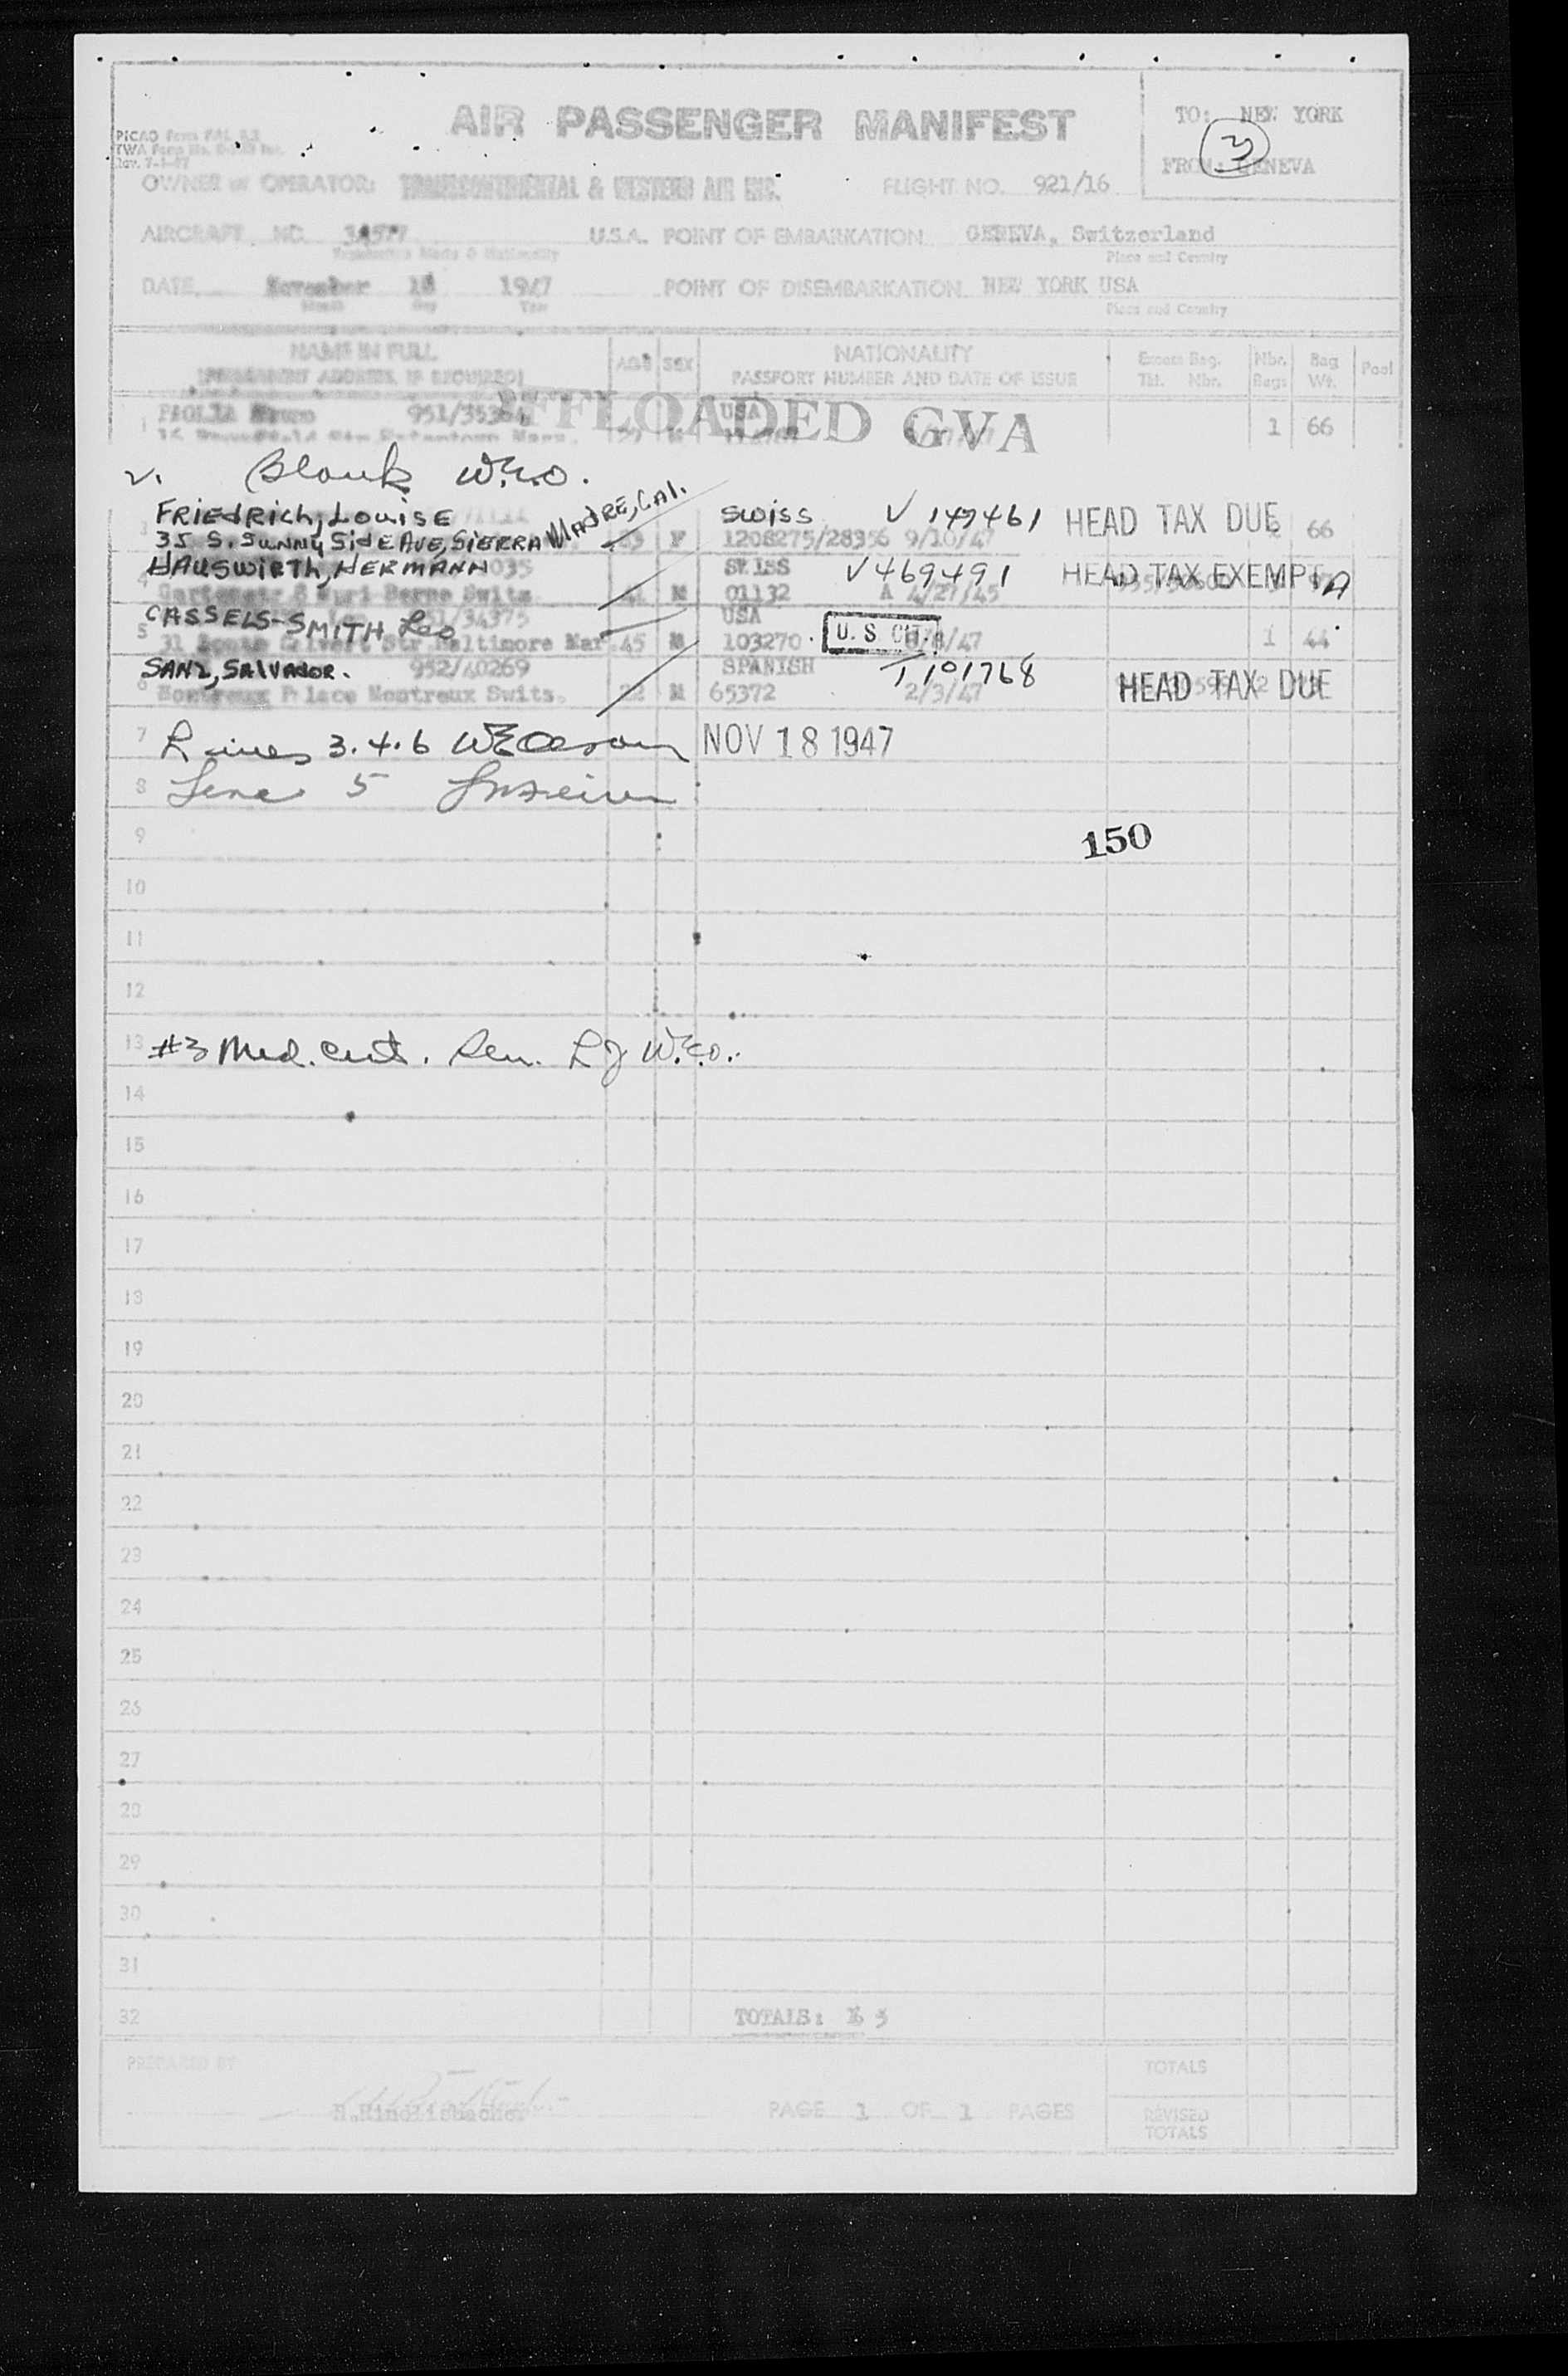 AIR PASSENGER MANIFEST
TO: NEW YORK
3
FROM: GENEVA
PICAO Form
TWA Form No.
Rev. 7-1-47
OWNER or OPERATOR: TRANSCONTINENTAL & WESTERN AIR INC. FLIGHT NO. 921/16
AIRCRAFT NO. U.S.A. POINT OF EMBARKATION GENEVA, Switzerland
Registration Marks & Nationality Place and Country
DATE November 18 1947 POINT OF DISEMBARKATION NEW YORK USA
Month Day Year Place and Country
NAME IN FULL AGE SEX NATIONALITY Excess Bag. Nbr. Bag Pool
(PERMANENT ADDRESS, IF REQUIRED) PASSPORT NUMBER AND DATE OF ISSUE Tkt. Nbr. Bags Wt.
OFFLOADED GVA
1 USA 1 66
2. Blank W.E.O.
FRIEdRICh, LouiSE SWiSS V 147461 HEAD TAX DUE
3 35 S. SuNNy SidE AvE, SiERRA MADRE, CAl. F 1208275/28356 9/10/47 66
HAUSWiRTh, HERMANN SWISS V469491 HEAD TAX EXEMPT
4 Berne Switz M 01132 A 4/27/45
CASSELS-SMITH Leo /34375 USA
5 31 Str Baltimore Mar 45 M 103270 U. S. CIT. /8/47 1 44
SANZ, SALVADOR. 952/40269 SPANISH T101768
6 Montreux Palace Montreux Switz. 22 M 65372 2/3/47 HEAD TAX DUE
7 Lines 3.4.6 NOV 18 1947
8 Line 5
9
150
10
11
12
13 #3 Med. cert. W.E.O.
14
15
16
17
18
19
20
21
22
23
24
25
26
27
28
29
30
31
32 TOTALS: 5
PREPARED BY TOTALS
PAGE 1 OF 1 PAGES REVISED
TOTALS